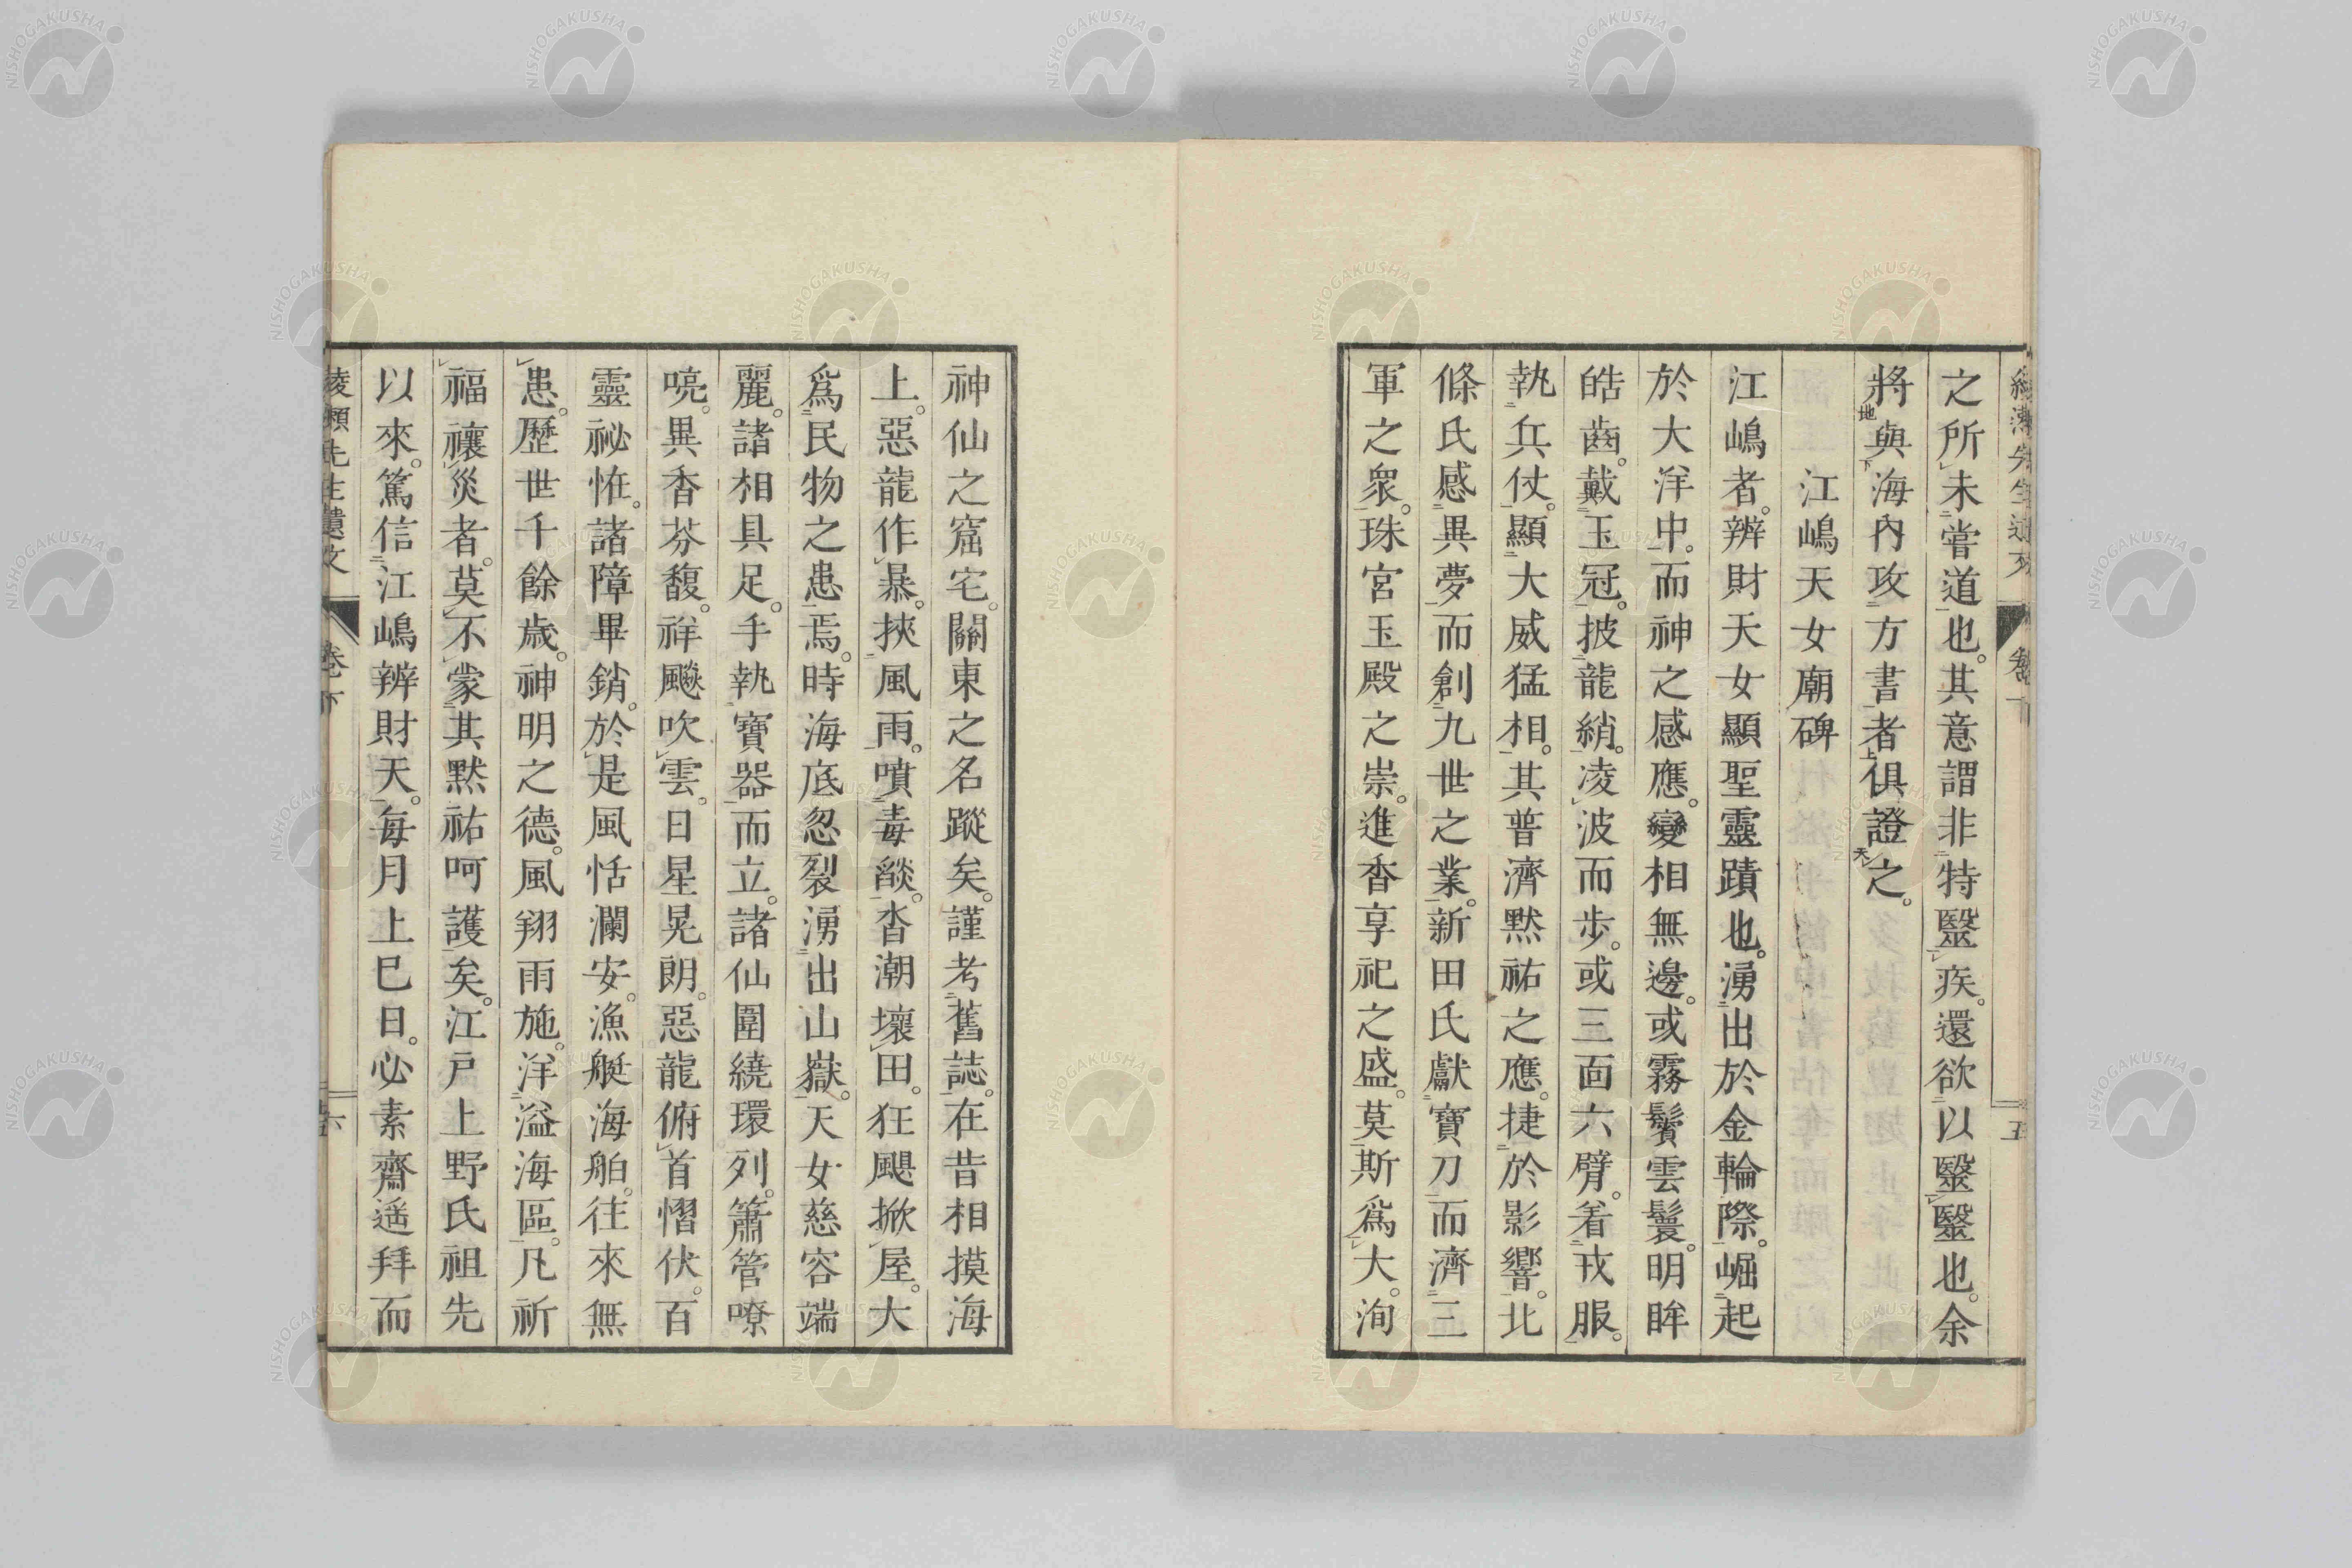 之所未嘗道也。其意謂非特毉疾。還欲以毉毉也。余
將與海內攻方書者俱證之。
江嶋天女廟碑
江嶋者。辨財天女顯聖靈蹟也。湧出於金輪際。崛起
於大洋中。而神之感應。變相無邊。或霧鬢雲鬟。明眸
皓齒。戴玉冠。披龍綃。凌波而步。或三面六臂。着戎服。
執兵仗。顯大威猛相。其普濟黙祐之應。捷於影響。北
條氏感異夢而創九世之業。新田氏獻寶刀而濟三
軍之衆。珠宮玉殿之崇。進香享祀之盛。莫斯爲大。洵
神仙之窟宅。關東之名蹤矣。謹考舊誌。在昔相摸海
上。惡龍作暴。挾風雨。噴毒燄。沓潮壞田。狂颶掀屋。大
爲民物之患焉。時海底忽裂湧出山嶽。天女慈容端
麗。諸相具足。手執寶器而立。諸仙圍繞環列。簫管嘹
喨。異香芬馥。祥飈吹雲。日星晃朗。惡龍俯首慴伏。百
靈祕恠。諸障畢銷。於是風恬瀾安。漁艇海舶。往來無
患。歷世千餘歲。神明之德。風翔雨施。洋溢海區。凡祈
福禳災者。莫不蒙其黙祐呵護矣。江戶上野氏祖先
以來。篤信江嶋辨財天。每月上巳日。必素齋遥拜而
先生遺文
卷下
六
NISHOGAKUSHA